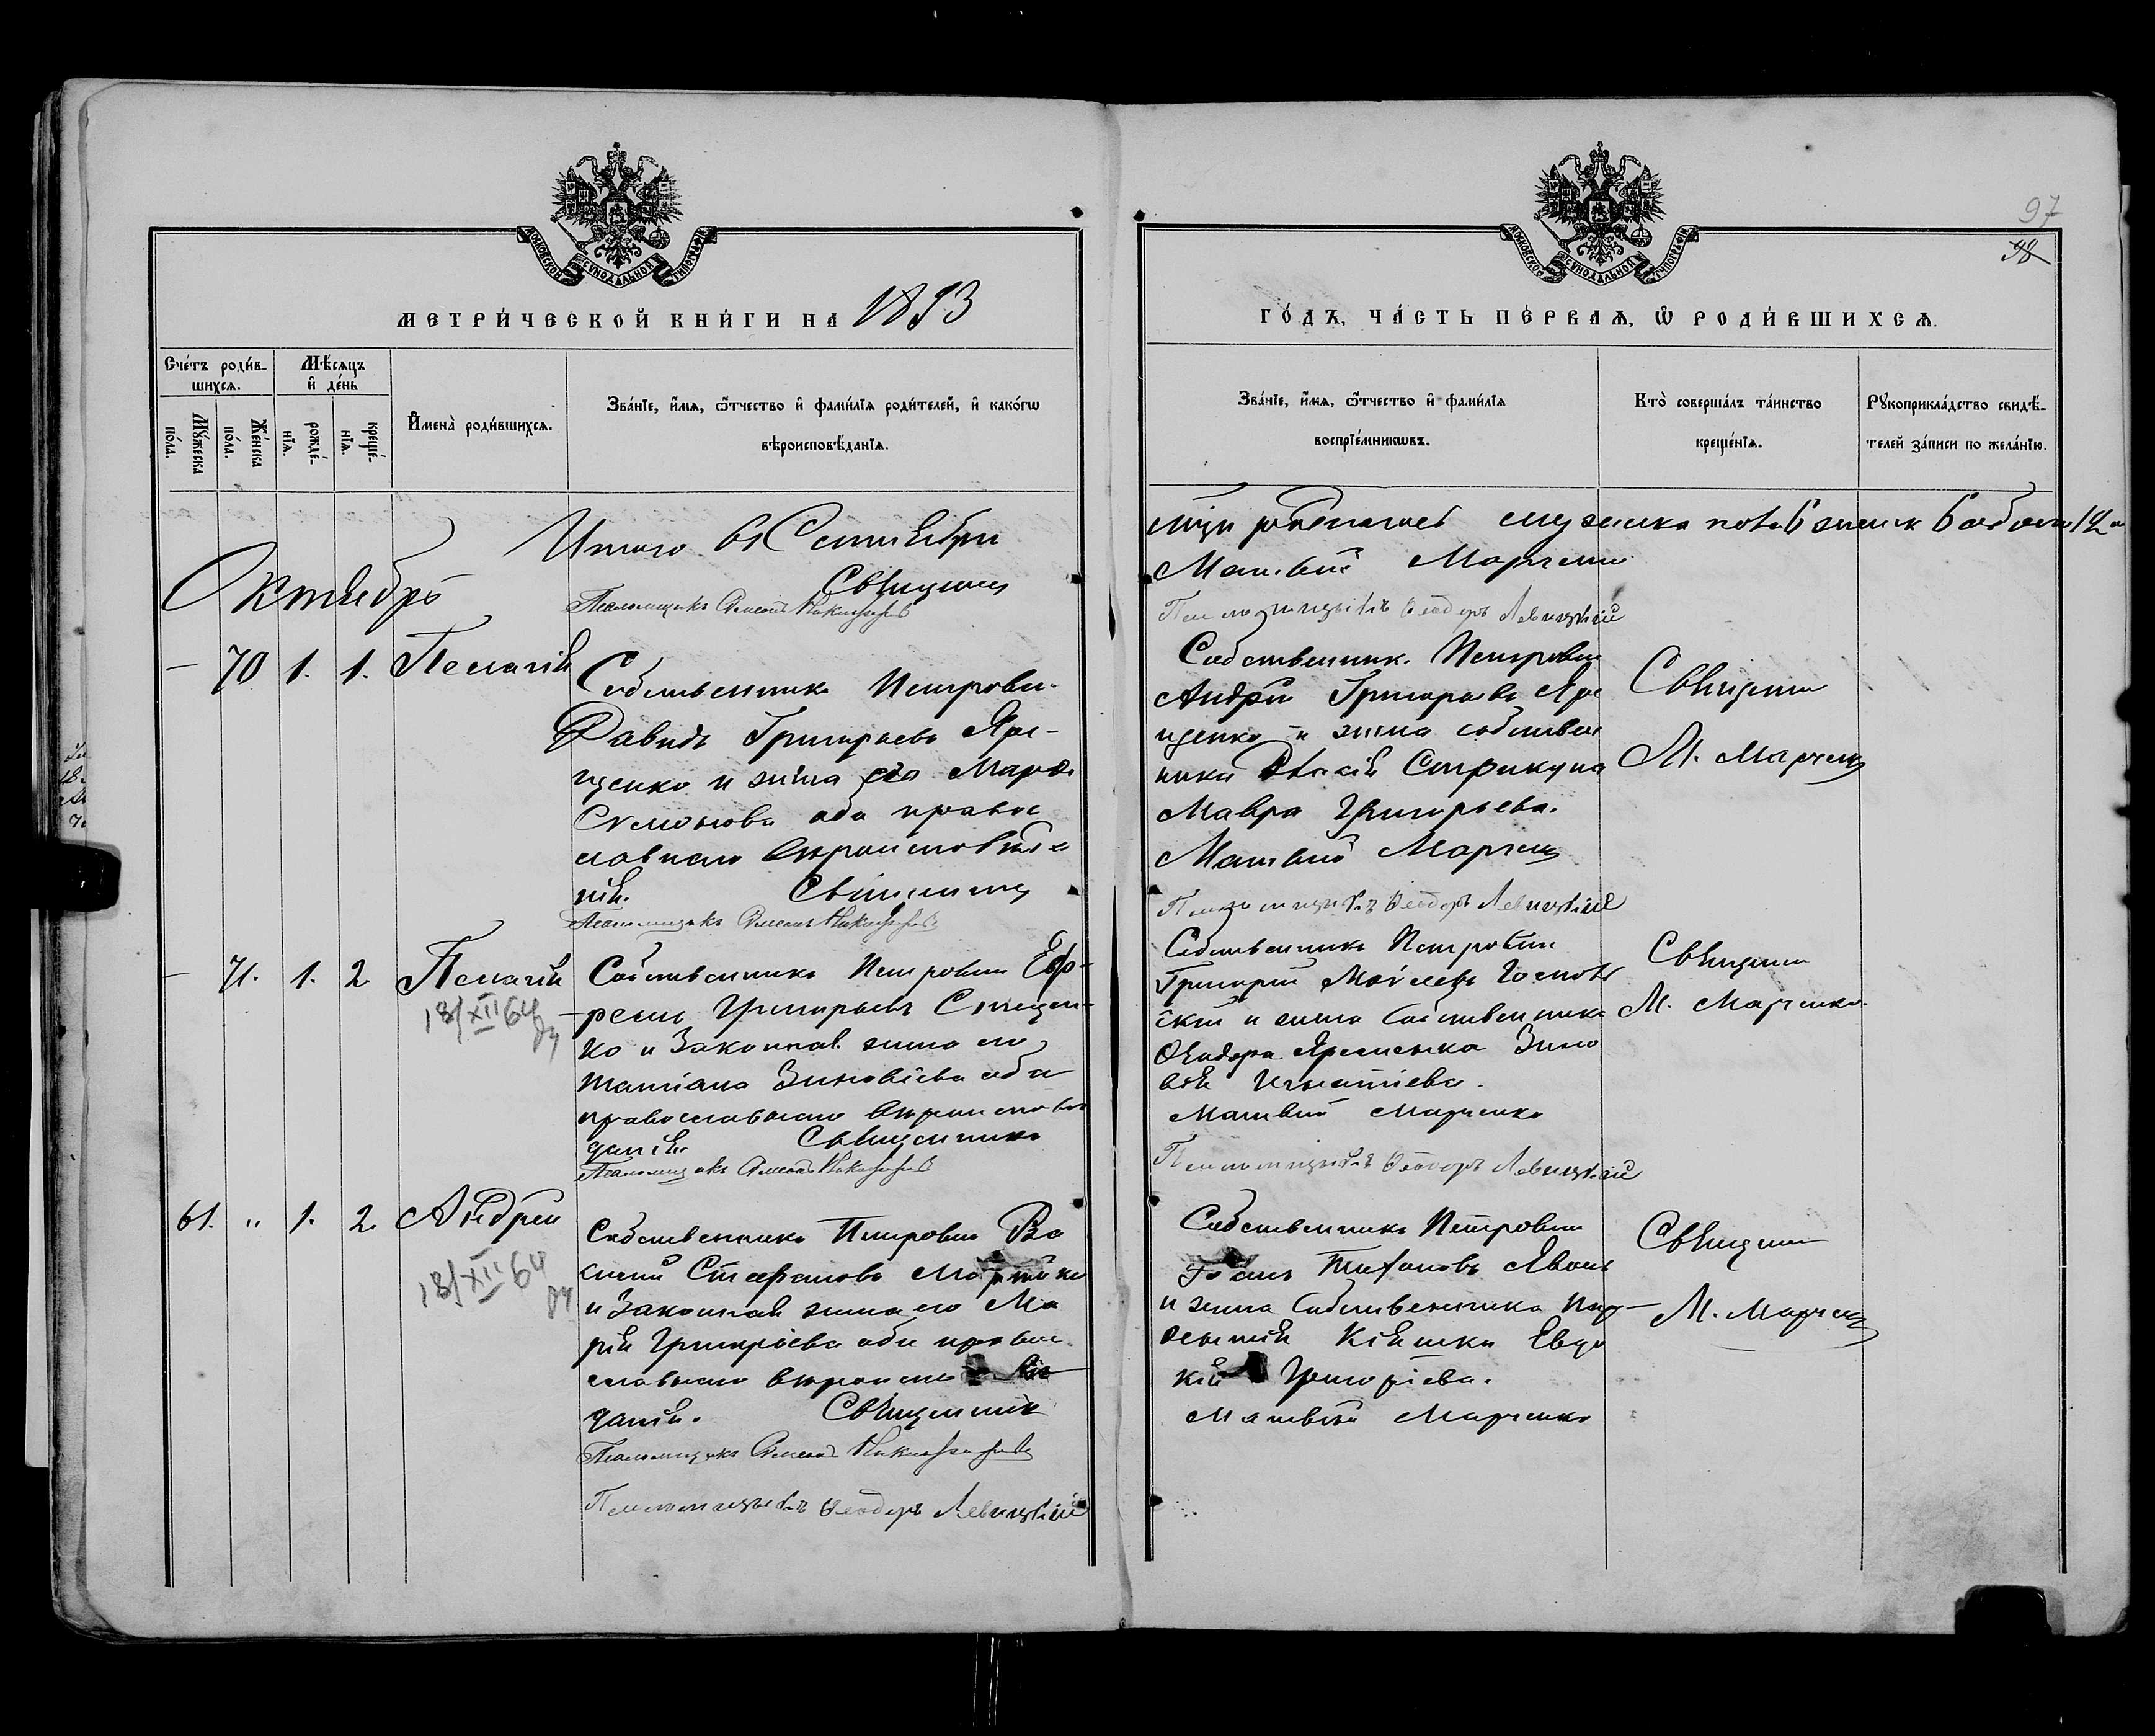 97
98
МЕТРИ́ЧЕСКОЙ КНИ́ГИ НА 1893
ГО́ДЪ, ЧА́СТЬ ПЕ́РВАЯ, Ѽ РОДИ́ВШИХСЯ.
Сче́тъ роди́в-
шихся.
Мѣ́сяцъ
и҆ де́нь
Му́жеска
по́ла.
Же́нска
по́ла.
рожде́-
нїя.
креще́-
нїя.
И҆мена̀ роди́вшихся.
Зва́нїе, и҆́мя, ѻ҆́тчество и҆ фами́лїя роди́телей, и҆ како́гѡ
вѣроисповѣ́данїя.
Зва́нїе, и҆́мя, ѻ҆́тчество и҆ фами́лїя
воспрїе́мникѡвъ.
Кто̀ соверша́лъ та́инство
креще́нїя.
Рꙋкоприкла́дство свидѣ́-
телей за́писи по жела́нїю.
Итого въ Сентябри
Священ
Псаломщикъ Симеонъ Никифоровъ
мужска пола 6 женск 6 обоего 12
Матвий Марченко
Псаломщикъ Ѳеодоръ Левицкій
Октябрь
— 70 1. 1. Пелагія
Собственникъ Петровки
Давидъ Григорьевъ Яре-
щенко и жена его Марѳа
Симонова оба право
славнаго вѣроисповѣда
нія. Священник
Псаломщикъ Симеонъ Никифоровъ
Собственник. Петровки
Андрей Григорьевъ Яре
щенко и жена собствен
ника Стрикуна
Мавра Григорьева.
Матвий Марченко
Псаломщикъ Ѳеодоръ Левицкій
Священник
М. Марченко
— 71. 1. 2 Пелагія
18/XII 64
Собственникъ Петровки Еф-
ремъ Григорьевъ
ко и законная жена его
Татіана Зиновіева оба
православнаго вѣроиспове
данія. Священникъ
Псаломщикъ Симеонъ Никифоровъ
Собственникъ Петровки
Григорий Моѵсеевъ
скій и жена Собственника
Ѳеодора Яременка Зино
вія Игнатіева.
Матвий Марченко
Псаломщикъ Ѳеодоръ Левицкій
Священник
М. Марченко.
61. " 1. 2. Андрей
18/XII 64
Собственникъ Петровки Ва
силий Стефановъ
и законная жена его Ма
рія Григоріева оба право
славнаго вѣроиспо
данія. Священник
Псаломщикъ Симеонъ Никифоровъ
Псаломщикъ Ѳеодоръ Левицкій
Собственникъ Петровки
Іоанъ Тихоновъ
и жена Собственника
Евдо
кія Григоріева.
Матвий Марченко
Священник
М. Марченко